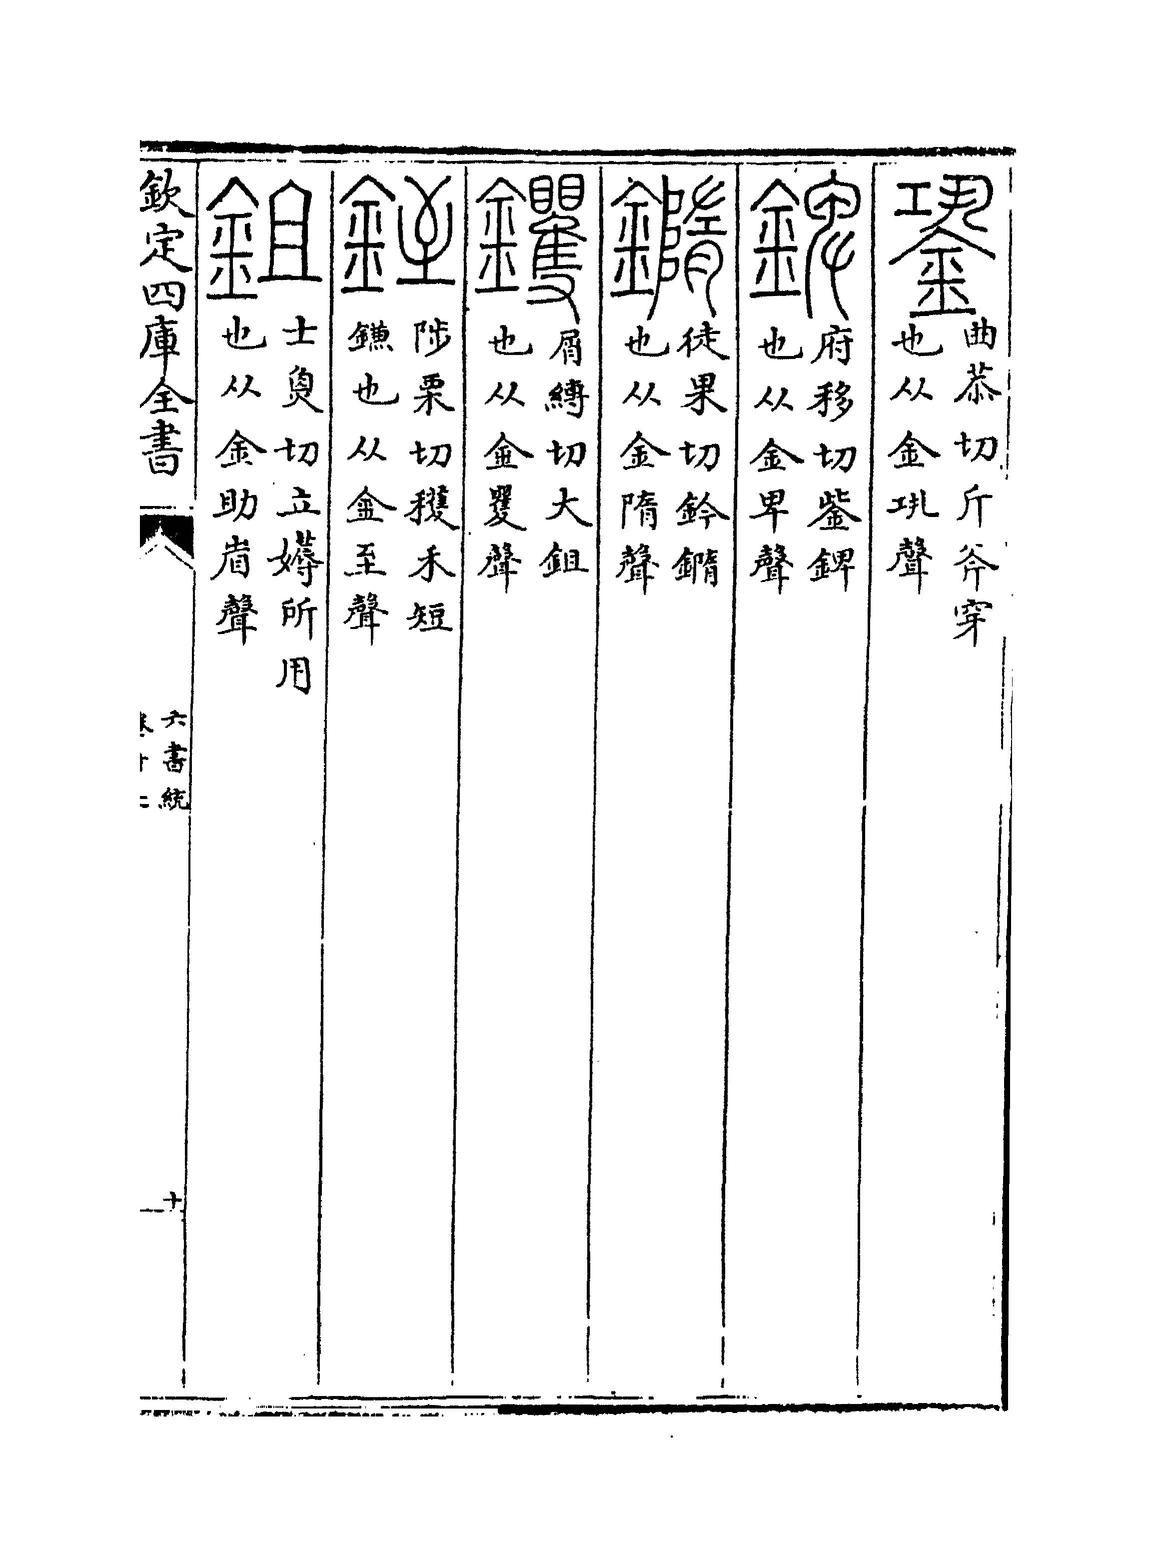 銎曲恭切斤斧穿
也从金巩聲
錍府移切鈭錍
也从金卑聲
鏅徒果切鈐鏅
也从金隋聲
钁屑縛切大鉏
也从金矍聲
銍陟栗切穫禾短
鎌也从金至聲
鉏士魚切立薅所用
也从金助省聲
欽定四庫全書
六書統
十